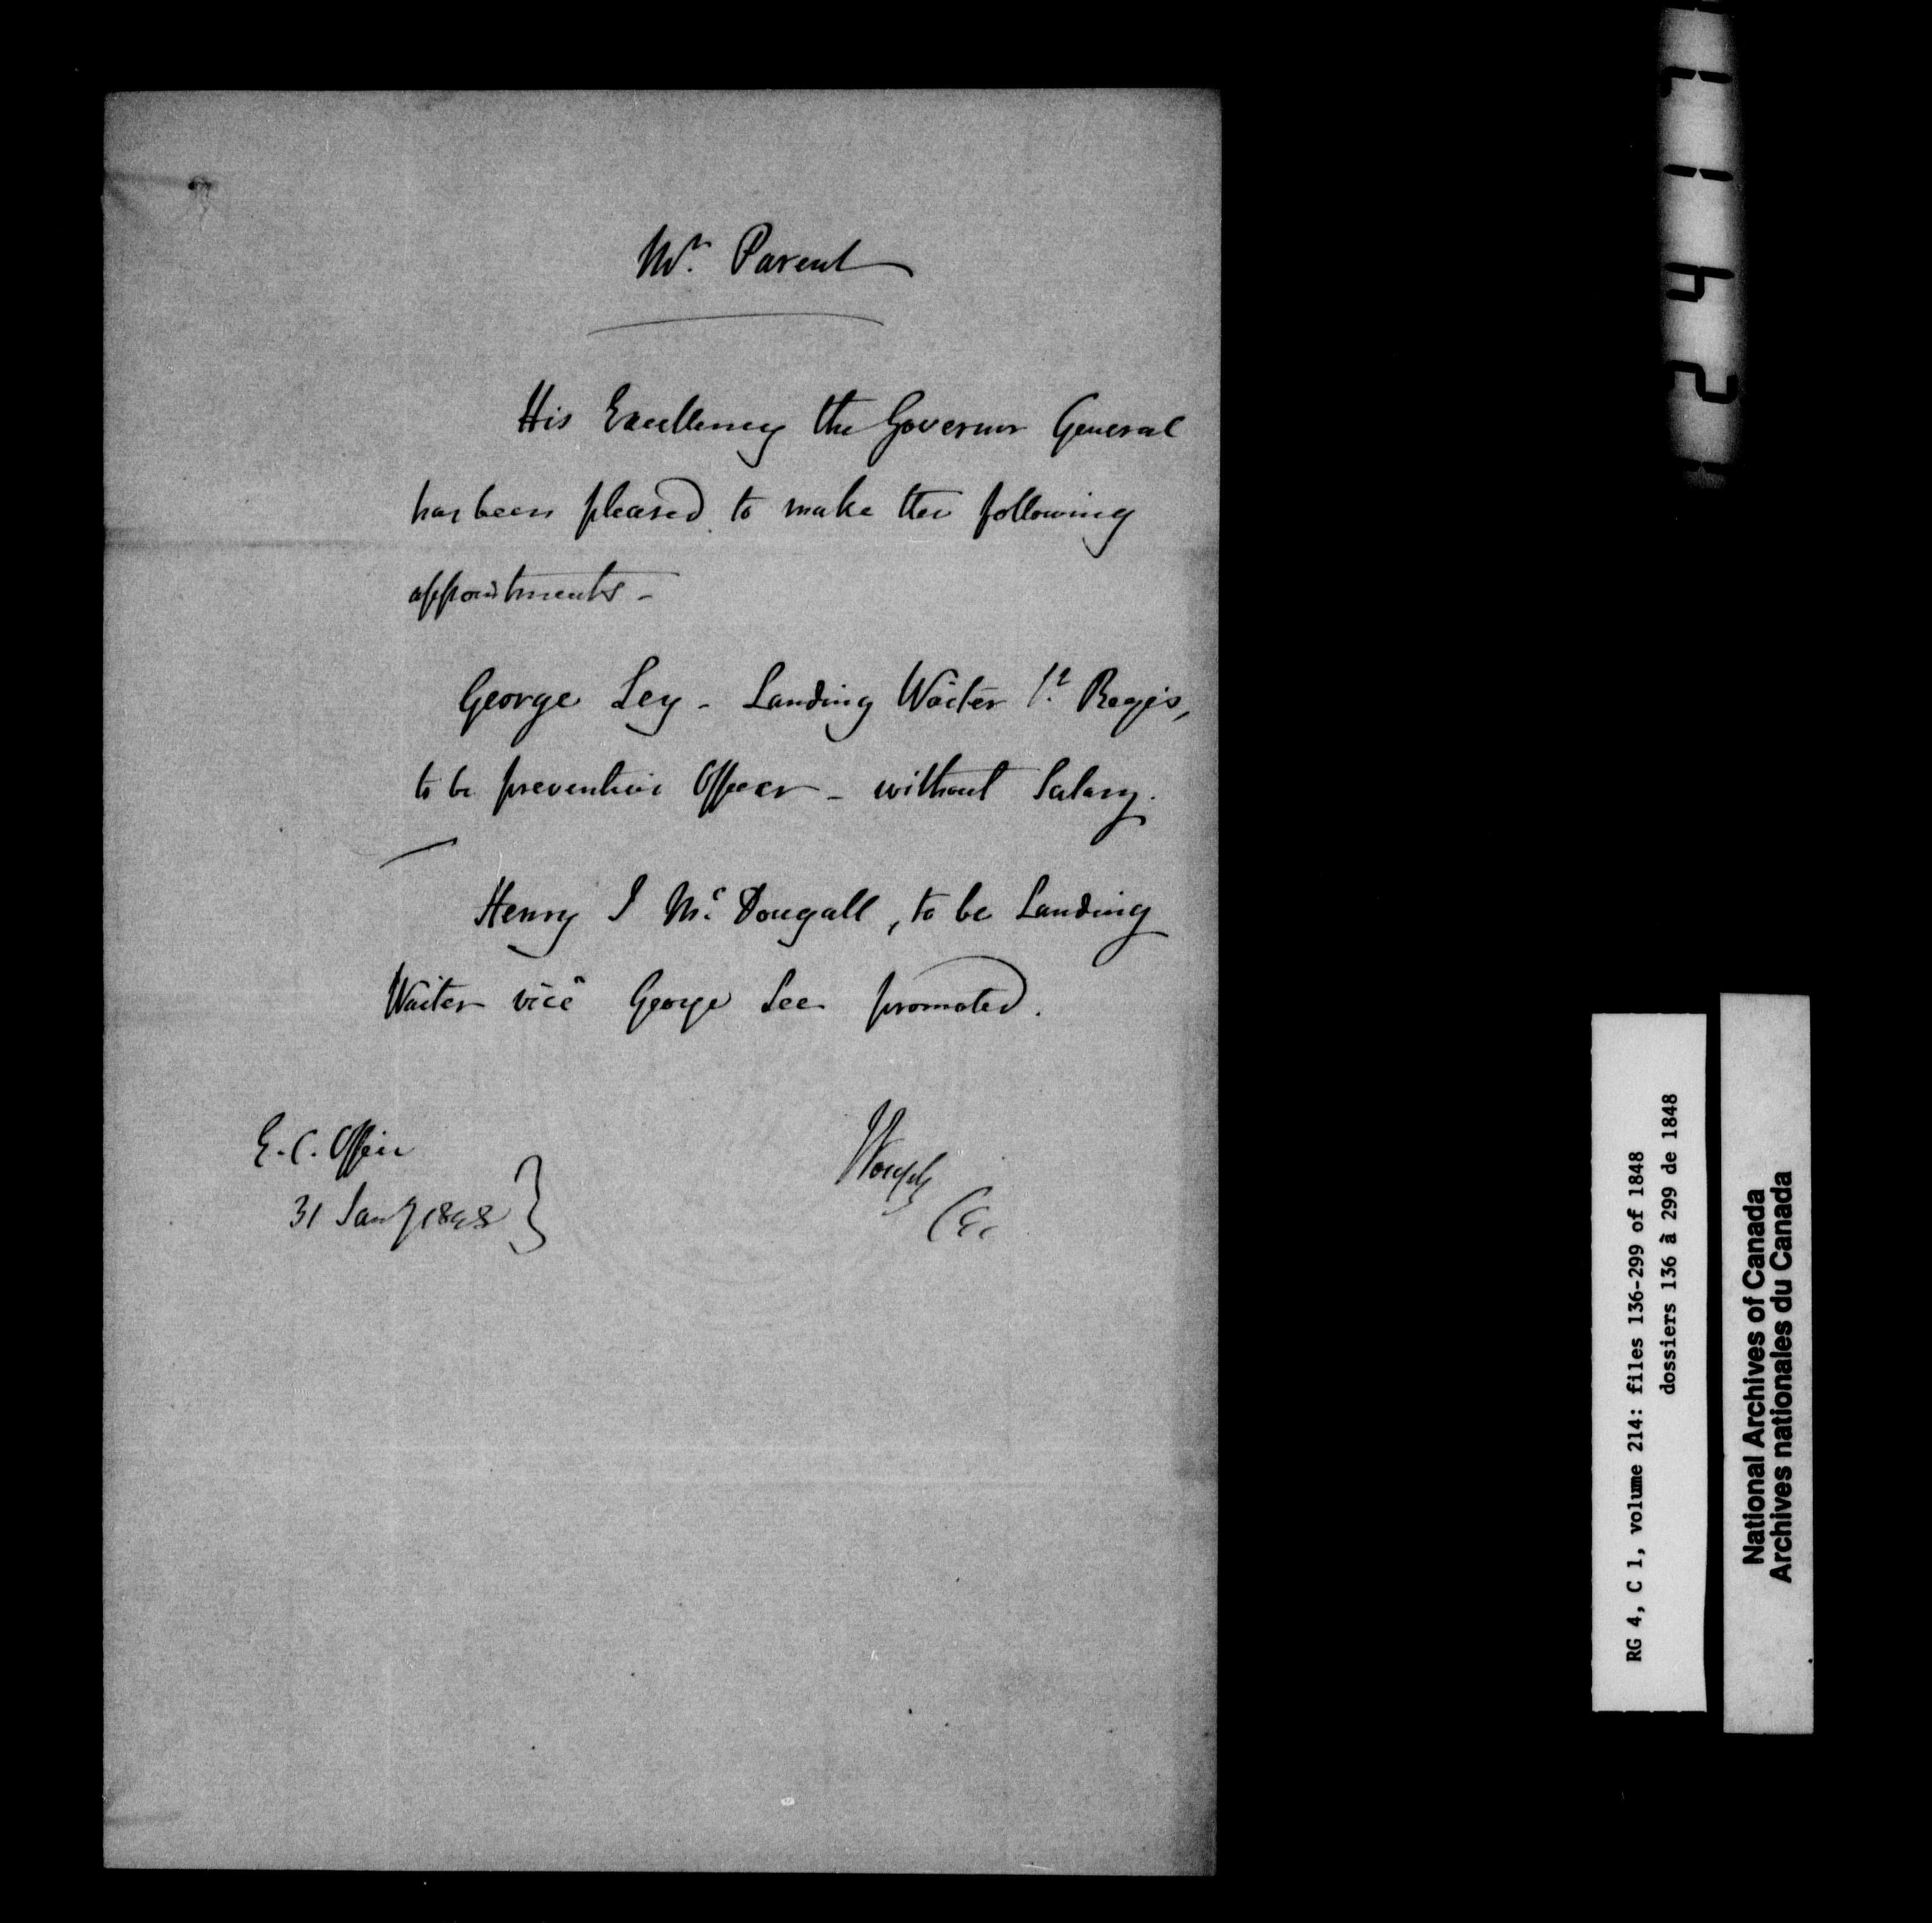 Mr. Parent
His Excellency the Governor General
has been pleased to make the following
appointments -
George Ley - Landing Waiter St. Regis,
to be preventive Officer - without Salary.
Henry I McDougall, to be Landing
Waiter vice George Lee promoted.
E. C. Office
31 Jany 1848
RG 4, C 1, volume 214: files 136-299 of 1848
dossiers 136 à 299 de 1848
National Archives of Canada
Archives nationales du Canada